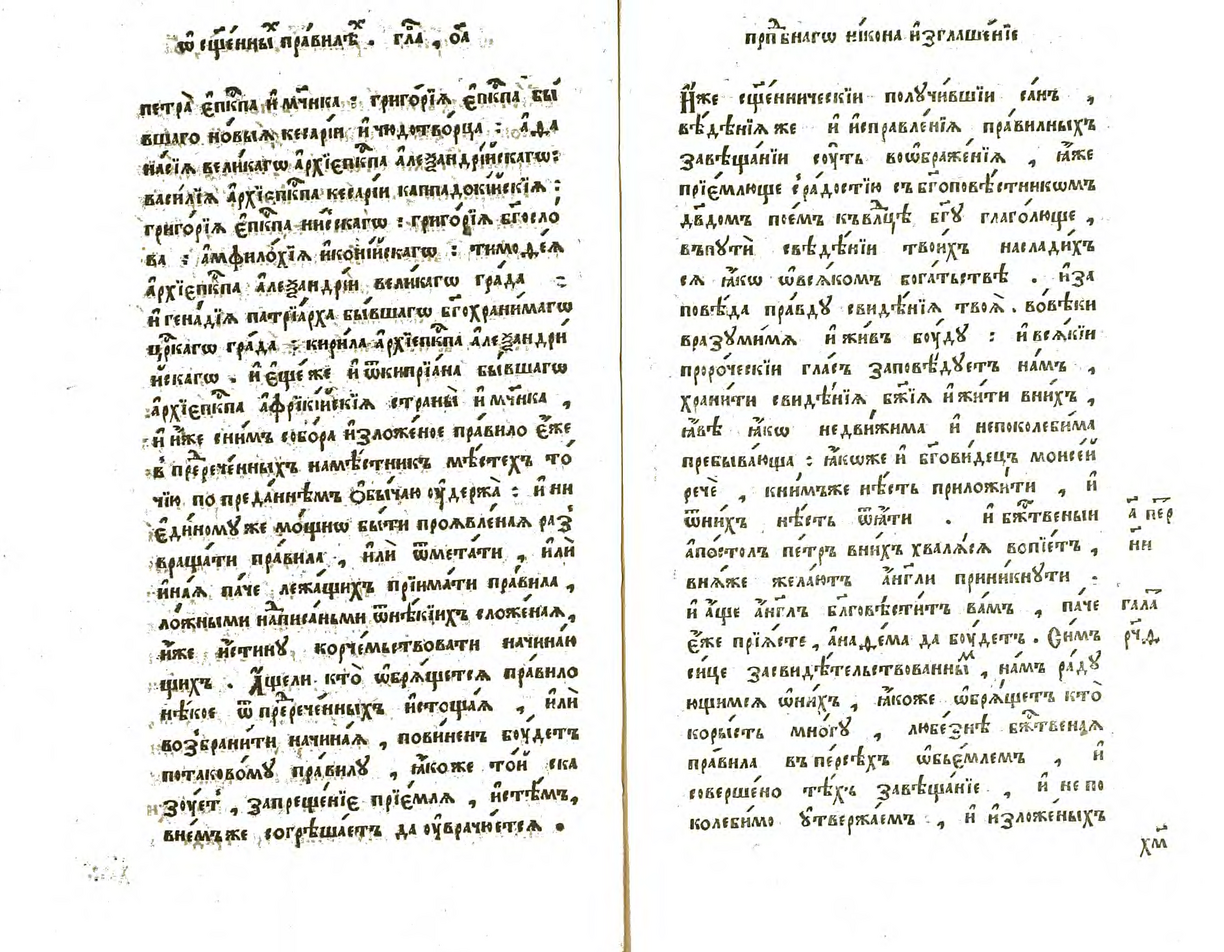 ѡ҆ сщ҃е́нны правилѣⷯ. гл҃а, о҃а
петра̀ є҆пⷭ҇кпа и҆ мч҃ника : григо́рїѧ є҆пⷭ҇кпа бы́
вшаго но́выѧ кеса́рїи и҆ чюдотво́рца : а҆ѳа
на́сїѧ вели́кагѡ а҆рхїєпⷭ҇кпа а҆леѯандрі́йскагѡ:
васи́лїѧ а҆рхїєпⷭ҇кпа кеса́рїи каппадокі́йскїѧ :
григо́рїѧ є҆пⷭ҇кпа ни́сскагѡ : григо́рїѧ бг҃осло́
ва : а҆мфило́хїѧ и҆коні́йскагѡ : тимоѳе́ѧ
а҆рхїєпⷭ҇кпа а҆леѯандрі́и вели́кагѡ гра́да :
и҆ гена́дїѧ патрїа́рха бы́вшагѡ бг҃охрани́магѡ
цр҃кагѡ гра́да : кири́ла а҆рхїєпⷭ҇кпа а҆леѯандри́
йскагѡ . и҆ є҆ще́ же и҆ ѿкипрїа́на бы́вшагѡ
а҆рхїєпⷭ҇кпа а҆фрїкі́йскїѧ страны̀ и҆ мч҃ника ,
и҆ и҆́же сни́мъ собо́ра и҆зложе́ное пра́вило є҆́же
в пререче́нныхъ намѣ́стникъ мѣ́стехъ то́
чїю по преда́ннѣмъ ѻ҆бы́чаю ᲂу҆держа̀ : и҆ ни
є҆ди́номꙋ же мо́щнѡ бы́ти проѧвле́наѧ раз̾
враща́ти пра́вила , и҆лѝ ѿмета́ти , и҆лѝ
и҆на́ѧ па́че лежа́щихъ прїима́ти пра́вила ,
ло́жными напи́саньми ѿнѣ́кїихъ сложе́наѧ,
и҆́же и҆́стинꙋ корче́мьствовати начина́ю
щихъ . А҆́щели кто̀ ѡ҆брѧ́щетсѧ пра́вило
нѣ́кое ѿ пререче́нныхъ и҆стоща́ѧ , и҆лѝ
воз̾брани́ти начина́ѧ , пови́ненъ бꙋ́детъ
потаково́мꙋ пра́вилꙋ , ꙗ҆́коже то́й ска
зꙋ́ет̾ , запреще́нїє прїе́млѧ , и҆стѣ́мъ,
вне́мъже согрѣша́етъ да ᲂу҆врачю́етсѧ .
прпⷣбнагѡ ни́кона и҆зглаше́нїе
И҆́же сщ҃е́нническїи полꙋчи́вшїи са́нъ ,
вѣ́дѣнїѧ же и҆ и҆справле́нїѧ пра́вилныхъ
завѣща́нїи сꙋ́ть воѡбраже́нїѧ , ꙗ҆́же
прїе́млюще с ра́достїю съ бг҃оповѣ́стникѡмъ
дв҃домъ пое́мъ къ влⷣцѣ бг҃ꙋ глаго́люще ,
въпꙋтѝ свѣ́дѣнїи твои́хъ наслади́хъ
сѧ ꙗ҆́кѡ ѡ҆всѧ́комъ бога́тьствѣ . и҆за
повѣ́да пра́вдꙋ свидѣ́нїѧ твоѧ̀ . во́вѣки
вразꙋми́мѧ и҆ жи́въ бꙋ́дꙋ : и҆ всѧ́кїи
проро́ческїи гла́съ запо́вѣдꙋетъ на́мъ ,
храни́ти свидѣ́нїѧ бж҃їѧ и҆ жи́ти вни́хъ ,
ꙗ҆́вѣ ꙗ҆́кѡ недви́жима и҆ непоколеби́ма
пребыва́юща : ꙗ҆́кѡже и҆ бг҃ови́децъ моисе́й
речѐ , кни́мъже нѣ́сть приложи́ти , и҆
ѿни́хъ нѣ́сть ѿѧ́ти . и҆ бжⷭ҇твеныи
а҆по́столъ пе́тръ вни́хъ хвалѧ́сѧ вопїе́тъ ,
внѧ́же жела́ютъ а҆́нг҃ли прини́кнꙋти :
и҆ а҆́ще а҆́нг҃лъ бл҃говѣсти́тъ ва́мъ , па́че
є҆́же прїѧ́сте , а҆на́ѳема да бꙋ́детъ . Си́мъ
си́це засвидѣ́тельствованныⷨ , на́мъ ра́дꙋ
ющимсѧ ѡ҆ни́хъ , ꙗ҆́коже ѡ҆брѧ́щетъ кто̀
коры́сть мно́гꙋ , любе́знѣ бжⷭ҇твенаѧ
пра́вила въ пе́рсѣхъ ѡ҆б̾е́млемъ , и҆
соверше́но тѣ́хъ завѣща́нїе , и҆ не по
колеби́мо ᲂу҆твержа́емъ , и҆ и҆зложе́ныхъ
а҃ пеⷬ
ни
гала
рч҃ѳ
хм҃